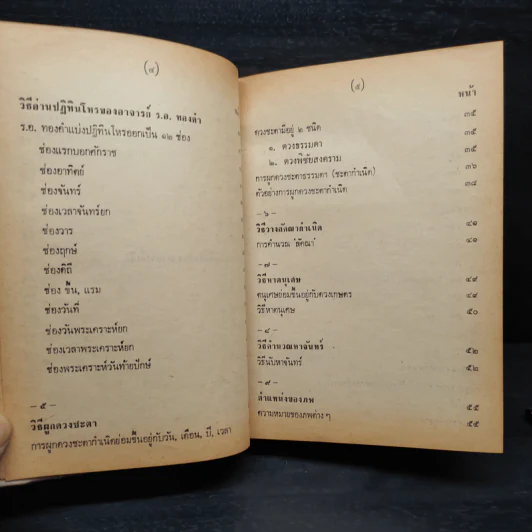 (๔)
วิธีอ่านปฏิทินโหรของอาจารย์ ร.อ. ทองคำ
ร.อ. ทองคำแบ่งปฏิทินโหรออกเป็น ๑๒ ช่อง
ช่องแรกบอกศักราช
ช่องอาทิตย์
ช่องจันทร์
ช่องเวลาจันทร์ยก
ช่องวาร
ช่องฤกษ์
ช่องดิถี
ช่อง ขึ้น, แรม
ช่องวันที่
ช่องวันพระเคราะห์ยก
ช่องเวลาพระเคราะห์ยก
ช่องพระเคราะห์วันท้ายปักษ์
– ๕ –
วิธีผูกดวงชะตา
การผูกดวงชะตากำเนิดย่อมขึ้นอยู่กับวัน, เดือน, ปี, เวลา
(๕)
หน้า
ดวงชะตามีอยู่ ๒ ชนิด ๓๕
๑. ดวงธรรมดา ๓๕
๒. ดวงพิชัยสงคราม ๓๕
การผูกดวงชะตาธรรมดา (ชะตากำเนิด) ๓๖
ตัวอย่างการผูกดวงชะตากำเนิด ๓๘
– ๖ –
วิธีวางลัคนากำเนิด ๔๑
การคำนวณ 'ลัคณา' ๔๑
– ๗ –
วิธีหาตนุเศษ ๔๙
ตนุเศษย่อมขึ้นอยู่กับดวงเกษตร ๔๙
วิธีหาตนุเศษ ๕๐
– ๘ –
วิธีคำนวณหาจันทร์ ๕๒
วิธีนับหาจันทร์ ๕๒
– ๙ –
ตำแหน่งของภพ ๕๕
ความหมายของภพต่าง ๆ ๕๕